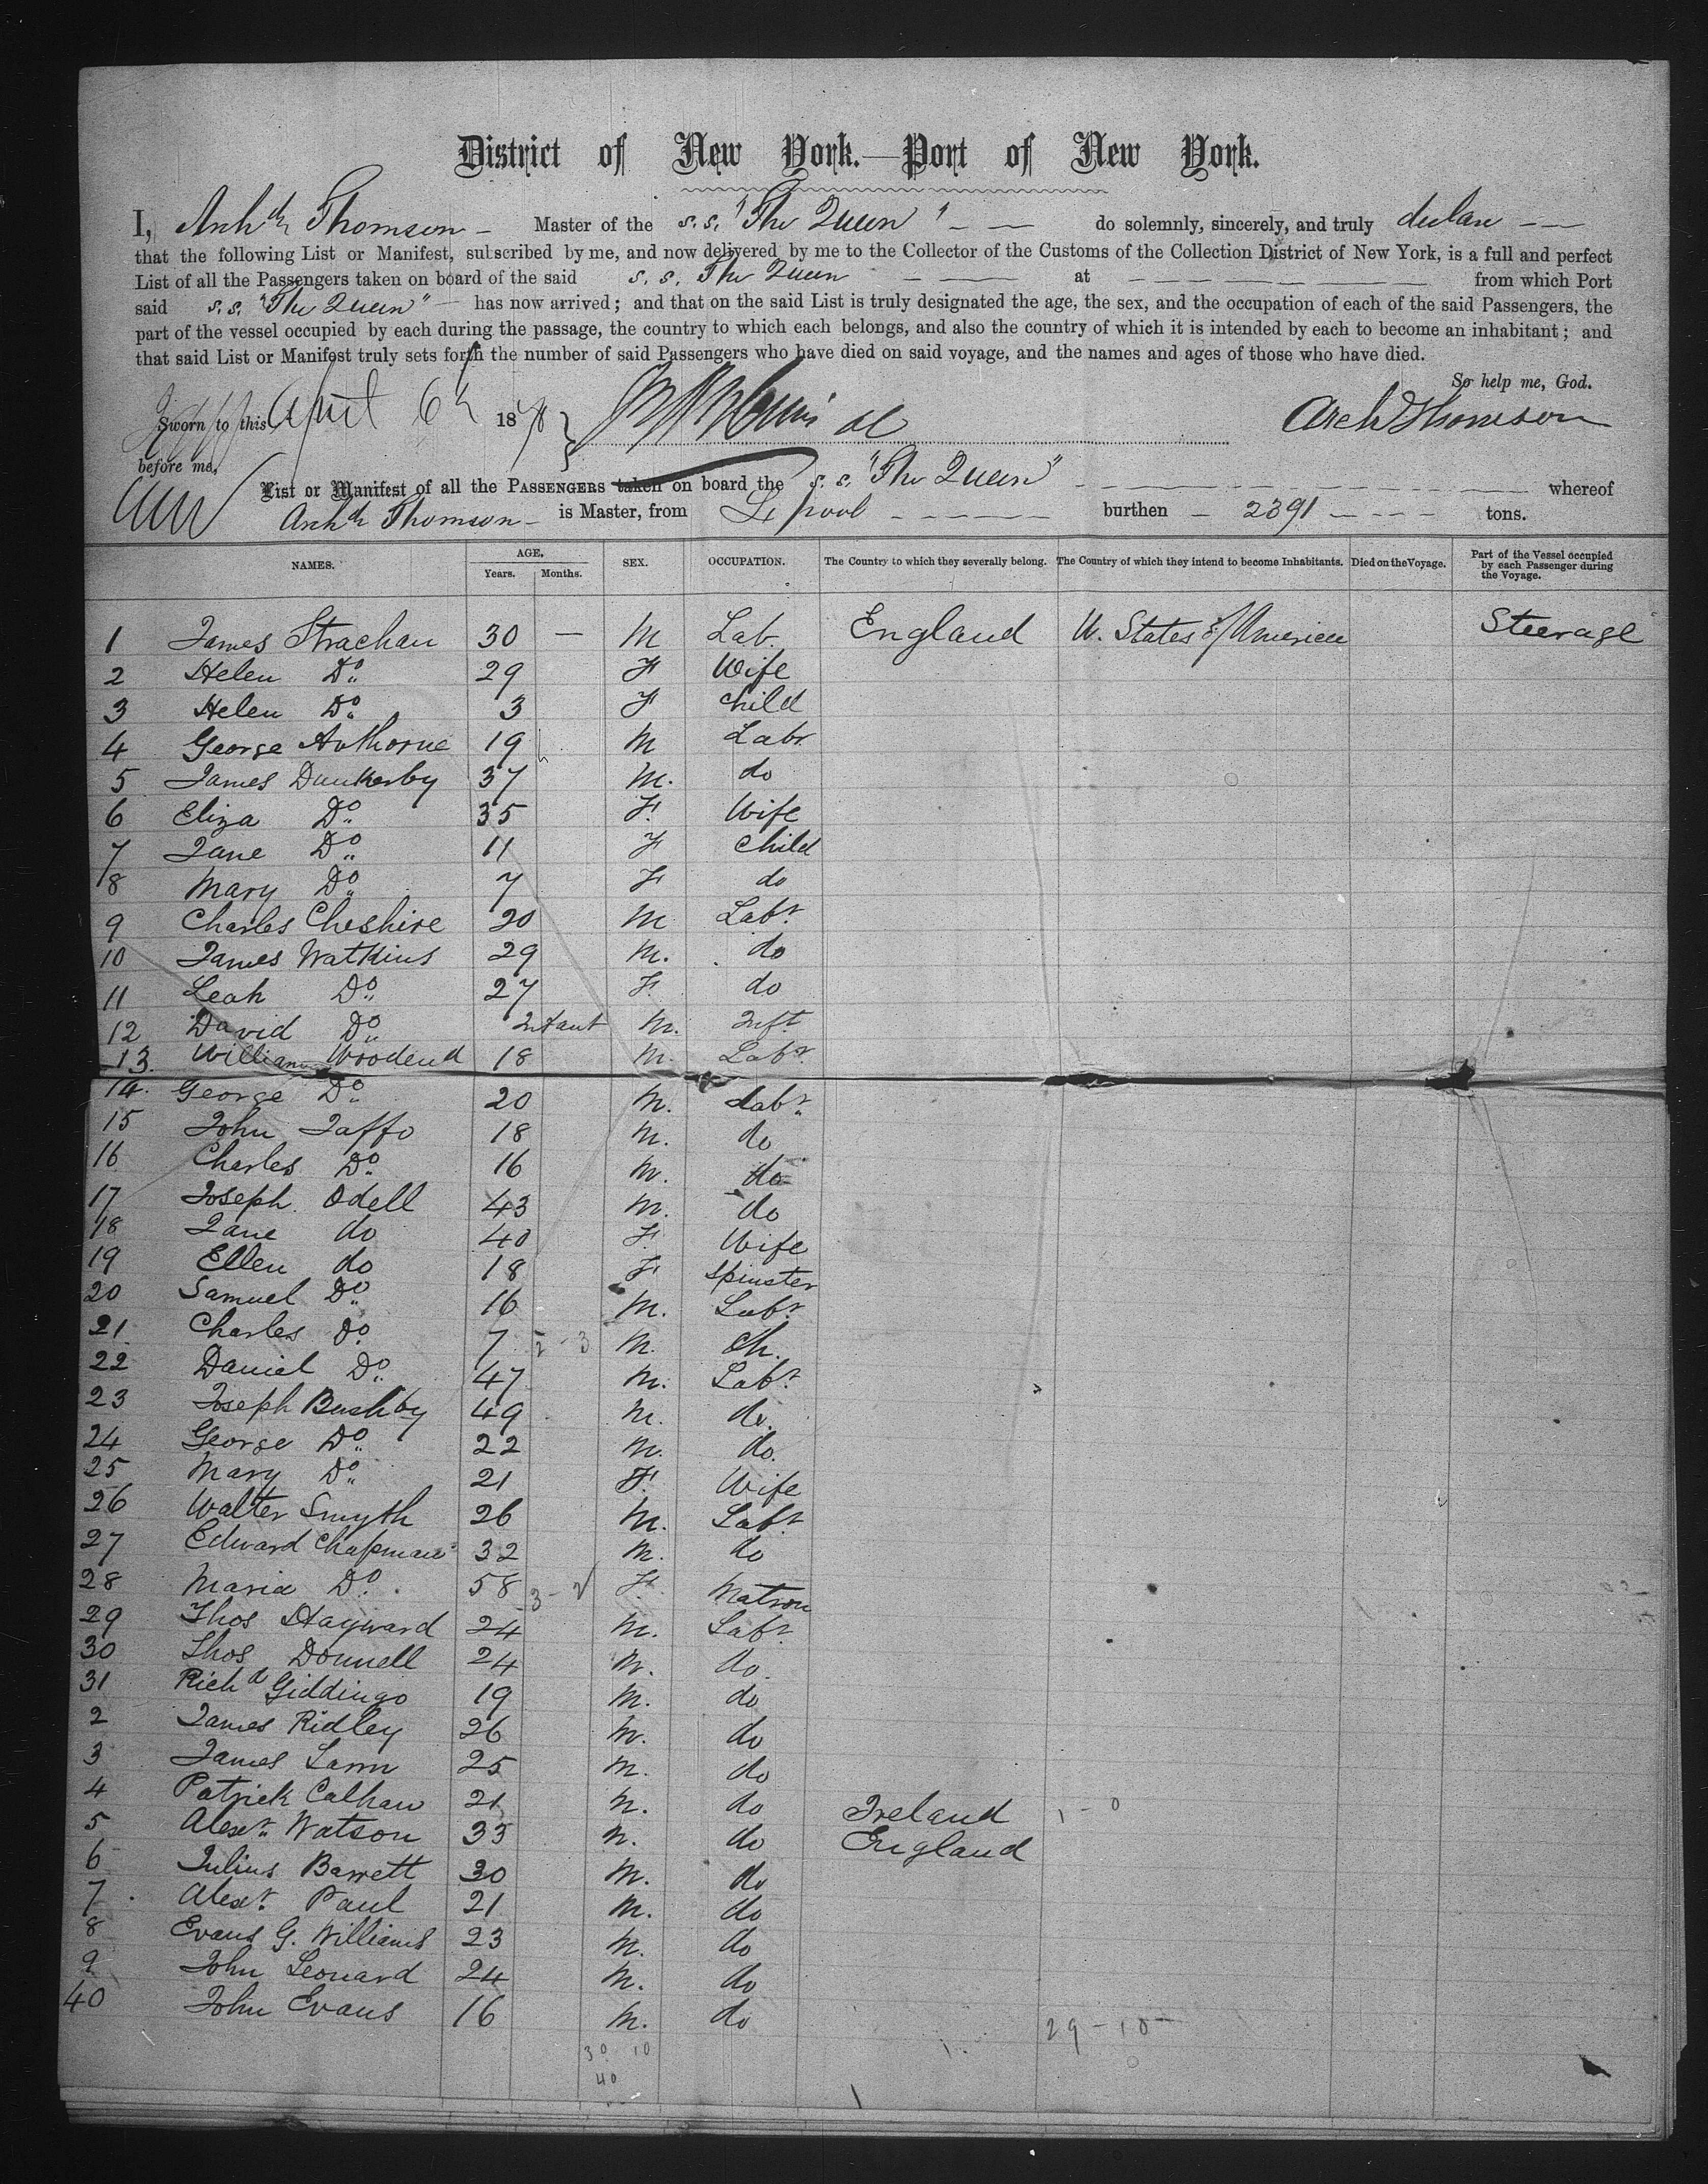 District of New York.—Port of New York.
I, Archd Thomson - Master of the s.s. "The Queen" - - do solemnly, sincerely, and truly declare - -
that the following List or Manifest, subscribed by me, and now delivered by me to the Collector of the Customs of the Collection District of New York, is a full and perfect
List of all the Passengers taken on board of the said s.s. The Queen - - at - - - - - - from which Port
said s.s. "The Queen" - has now arrived; and that on the said List is truly designated the age, the sex, and the occupation of each of the said Passengers, the
part of the vessel occupied by each during the passage, the country to which each belongs, and also the country of which it is intended by each to become an inhabitant; and
that said List or Manifest truly sets forth the number of said Passengers who have died on said voyage, and the names and ages of those who have died.
So help me, God.
Sworn to this April 6th 18 Arch Thomson
before me,
List or Manifest of all the PASSENGERS taken on board the s.s. "The Queen" - - - - whereof
Archd Thomson - is Master, from L'pool - - - - burthen - 2391 - - - - tons.
NAMES. AGE. Years. Months. SEX. OCCUPATION. The Country to which they severally belong. The Country of which they intend to become Inhabitants. Died on the Voyage. Part of the Vessel occupied by each Passenger during the Voyage.
1 James Strachan 30 — M Lab. England U. States of America Steerage
2 Helen Do 29 F Wife
3 Helen Do 3 F Child
4 George 19 M Labr
5 James Dunkerby 37 M. do
6 Eliza Do 35 F. Wife
7 Jane Do 11 F Child
8 Mary Do 7 F do
9 Charles Cheshire 20 M Labr.
10 James Watkins 29 M. do
11 Leah Do 27 F. do
12 David Do Infant M. Inft
13. William Woodend 18 M. Labr.
14. George Do 20 M. Labr.
15 John Jaffo 18 M. do
16 Charles Do 16 M. do
17 Joseph Odell 43 M. do
18 Jane do 40 F. Wife
19 Ellen do 18 F Spinster
20 Samuel Do 16 M. Labr.
21. Charles Do 7 2 - 3 M. Ch.
22 Daniel Do 47 M. Labr.
23 Joseph Bushby 49 M. do.
24 George Do 22 M. do.
25 Mary Do 21 F. Wife
26 Walter Smyth 26 M. Labr.
27 Edward Chapman 32 M. do
28 Maria Do 58 3 - F. Matron
29 Thos Hayward 24 M. Labr.
30 Thos Donnell 24 M. do.
31 Richd Giddings 19 M. do
2 James Ridley 26 M. do
3 James Lamn 25 M. do
4 Patrick Calhaw 21 M. do Ireland 1 - 0
5 Alexr. Watson 35 M. do England
6 Julius Barrett 30 M. do
7 Alexr. Paul 21 M. do
8 Evans G. Williams 23 M. do
9 John Leonard 24 M. do
40 John Evans 16 M. do
29 - 10
30 10
40